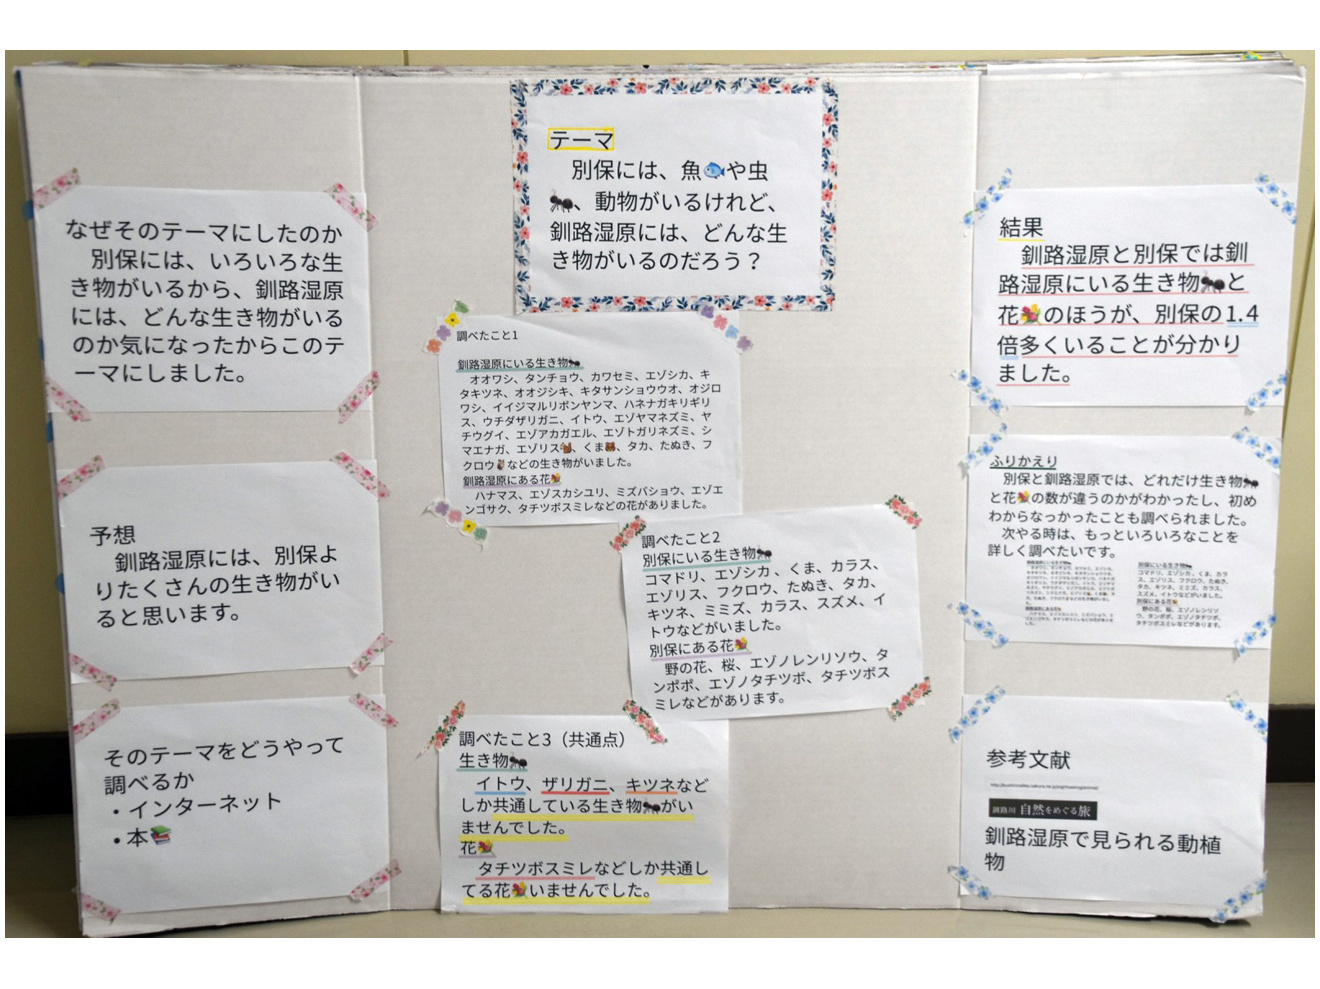 テーマ
別保には、魚🐟や虫
🐜、動物がいるけれど、
釧路湿原には、どんな生
き物がいるのだろう？
なぜそのテーマにしたのか
別保には、いろいろな生
き物がいるから、釧路湿原
には、どんな生き物がいる
のか気になったからこのテ
ーマにしました。
予想
釧路湿原には、別保よ
りたくさんの生き物がい
ると思います。
そのテーマをどうやって
調べるか
・インターネット
・本📚
調べたこと1
釧路湿原にいる生き物🐜
オオワシ、タンチョウ、カワセミ、エゾシカ、キ
タキツネ、オオジシキ、キタサンショウウオ、オジロ
ワシ、イイジマルリボンヤンマ、ハネナガキリギリ
ス、ウチダザリガニ、イトウ、エゾヤマネズミ、ヤ
チウグイ、エゾアカガエル、エゾトガリネズミ、シ
マエナガ、エゾリス🐿、くま🐻、タカ、たぬき、フ
クロウ🦉などの生き物がいました。
釧路湿原にある花🌺
ハナマス、エゾスカシユリ、ミズバショウ、エゾエ
ンゴサク、タチツボスミレなどの花がありました。
調べたこと2
別保にいる生き物🐜
コマドリ、エゾシカ、くま、カラス、
エゾリス、フクロウ、たぬき、タカ、
キツネ、ミミズ、カラス、スズメ、イ
トウなどがいました。
別保にある花🌺
野の花、桜、エゾノレンリソウ、タ
ンポポ、エゾノタチツボ、タチツボス
ミレなどがあります。
調べたこと3（共通点）
生き物🐜
イトウ、ザリガニ、キツネなど
しか共通している生き物🐜がい
ませんでした。
花🌺
タチツボスミレなどしか共通し
てる花🌺いませんでした。
結果
釧路湿原と別保では釧
路湿原にいる生き物🐜と
花🌺のほうが、別保の1.4
倍多くいることが分かり
ました。
ふりかえり
別保と釧路湿原では、どれだけ生き物🐜
と花🌺の数が違うのかがわかったし、初め
わからなっかったことも調べられました。
次やる時は、もっといろいろなことを
詳しく調べたいです。
別保にいる生き物🐜
コマドリ、エゾシカ、くま、カラ
ス、エゾリス、フクロウ、たぬき、
タカ、キツネ、ミミズ、カラス、
スズメ、イトウなどがいました。
別保にある花🌺
野の花、桜、エゾノレンリソ
ウ、タンポポ、エゾノタチツボ、
タチツボスミレなどがあります。
参考文献
釧路川 自然をめぐる旅
釧路湿原で見られる動植
物